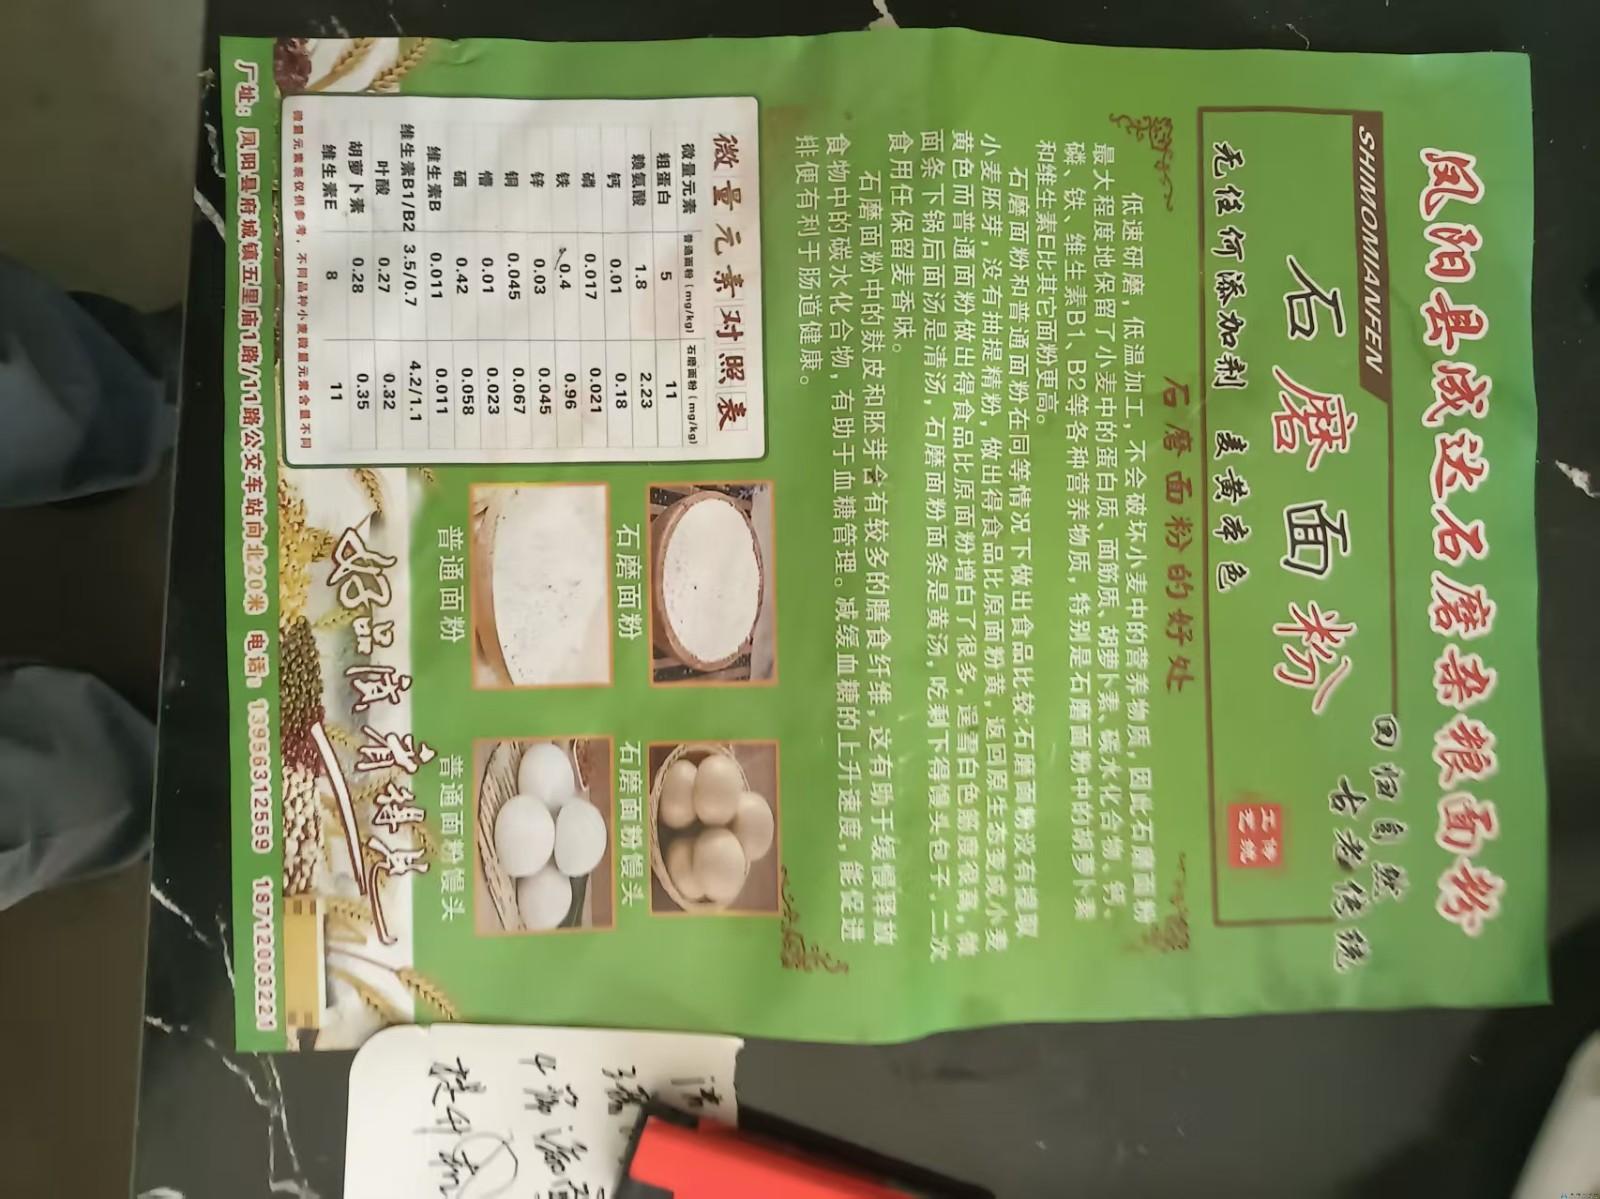 凤阳县成达石磨杂粮面粉
回归自然
古老传统
SHIMOMIANFEN
石磨面粉
传统
工艺
无任何添加剂 麦黄本色
石磨面粉的好处
低速研磨，低温加工，不会破坏小麦中的营养物质，因此石磨面粉
最大程度地保留了小麦中的蛋白质、面筋质、胡萝卜素、碳水化合物、钙、
磷、铁、维生素B1、B2等各种营养物质，特别是石磨面粉中的胡萝卜素
和维生素E比其它面粉更高。
石磨面粉和普通面粉在同等情况下做出食品比较:石磨面粉没有提取
小麦胚芽，没有抽提精粉，做出得食品比原面粉黄，返回原生态变成小麦
黄色而普通面粉做出得食品比原面粉增白了很多，逞雪白色筋度很高，做
面条下锅后面汤是清汤，石磨面粉面条是黄汤，吃剩下得馒头包子，二次
食用任保留麦香味。
石磨面粉中的麸皮和胚芽含有较多的膳食纤维，这有助于缓慢释放
食物中的碳水化合物，有助于血糖管理。减缓血糖的上升速度，能促进
排便有利于肠道健康。
微量元素对照表
微量元素 普通面粉(mg/kg) 石磨面粉(mg/kg)
粗蛋白 5 11
赖氨酸 1.8 2.23
钙 0.01 0.18
磷 0.017 0.021
铁 0.4 0.96
锌 0.03 0.045
铜 0.045 0.067
懵 0.01 0.023
硒 0.42 0.058
维生素B 0.011 0.011
维生素B1/B2 3.5/0.7 4.2/1.1
叶酸 0.27 0.32
胡萝卜素 0.28 0.35
维生素E 8 11
微量元素表仅供参考，不同品种小麦微量元素含量不同
石磨面粉
石磨面粉馒头
普通面粉
普通面粉馒头
好品质 看得见
厂址：凤阳县府城镇五里庙1路/11路公交车站向北20米 电话：13956312559 18712003221